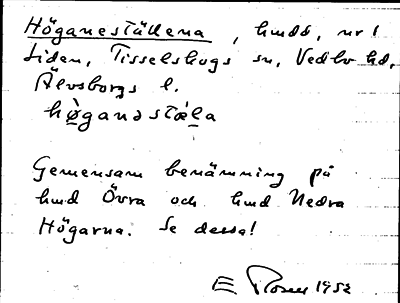 Höganeställena, hmdd, nr 1
Liden, Tisselskogs sn, Vedbo hd,
Älvsborgs l.
hö̀ganastä̀la
Gemensam benämning på
hmd Övra och hmd Nedra
Högarna. Se dessa!
E Rosell 1952